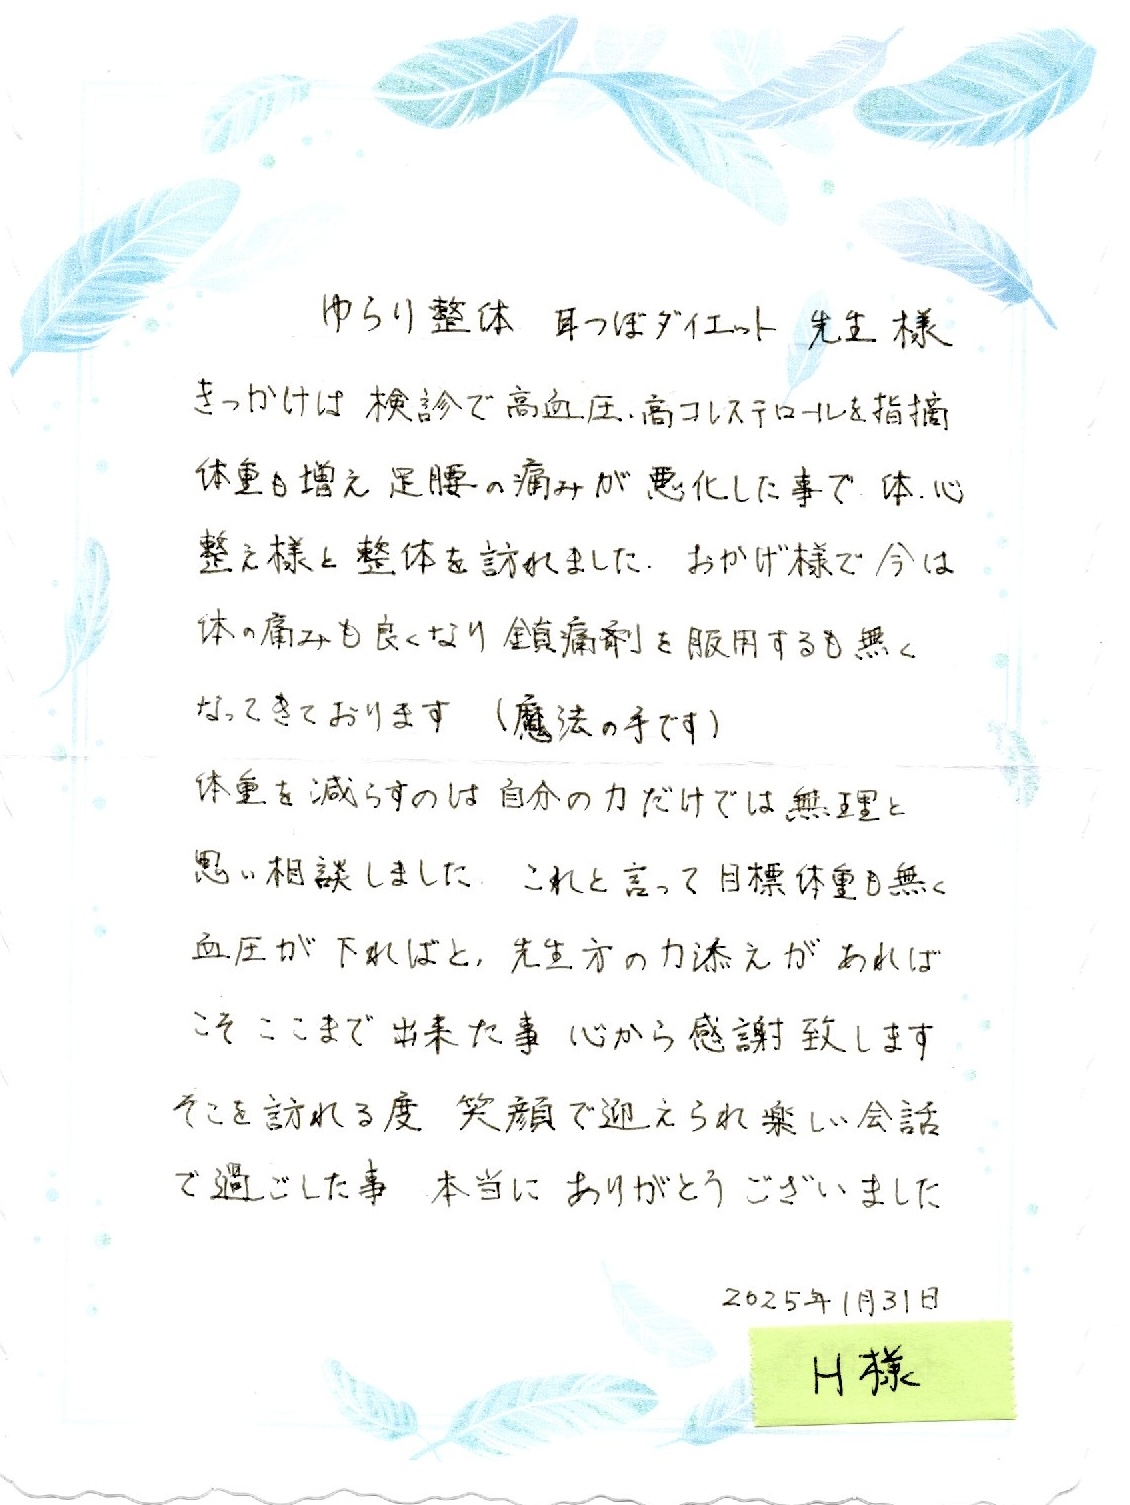 ゆらり整体 耳つぼダイエット 先生様
きっかけは 検診で高血圧、高コレステロールを指摘
体重も増え 足腰の痛みが 悪化した事で 体、心
整え様と 整体を訪れました. おかげ様で今は
体の痛みも良くなり 鎮痛剤を服用するも無く
なってきております (魔法の手です)
体重を減らすのは自分の力だけでは無理と
思い相談しました. これと言って目標体重も無く
血圧が下ればと, 先生方の力添えがあれば
こそここまで出来た事 心から感謝致します
そこを訪れる度 笑顔で迎えられ楽しい会話
で過ごした事 本当にありがとうございました
2025年1月31日
H様